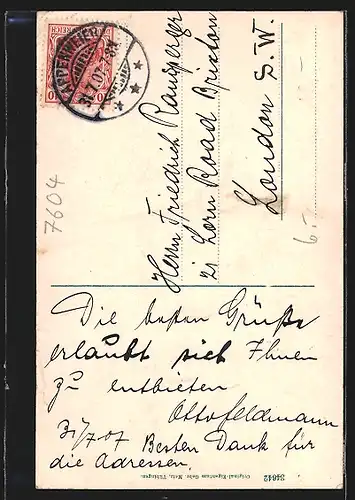 APPENWEIER
31.7.07. 7-8N
REICH
10
10
7604
Herrn Friedrich
21 Lorn Road Brixton
London S. W.
6.-
Die besten Grüße
erlaubt sich Ihnen
zu entbieten
Otto Feldmann
31/7.07 Besten Dank für
die Adressen.
Original-Eigentum Gebr. Metz, Tübingen. 34642